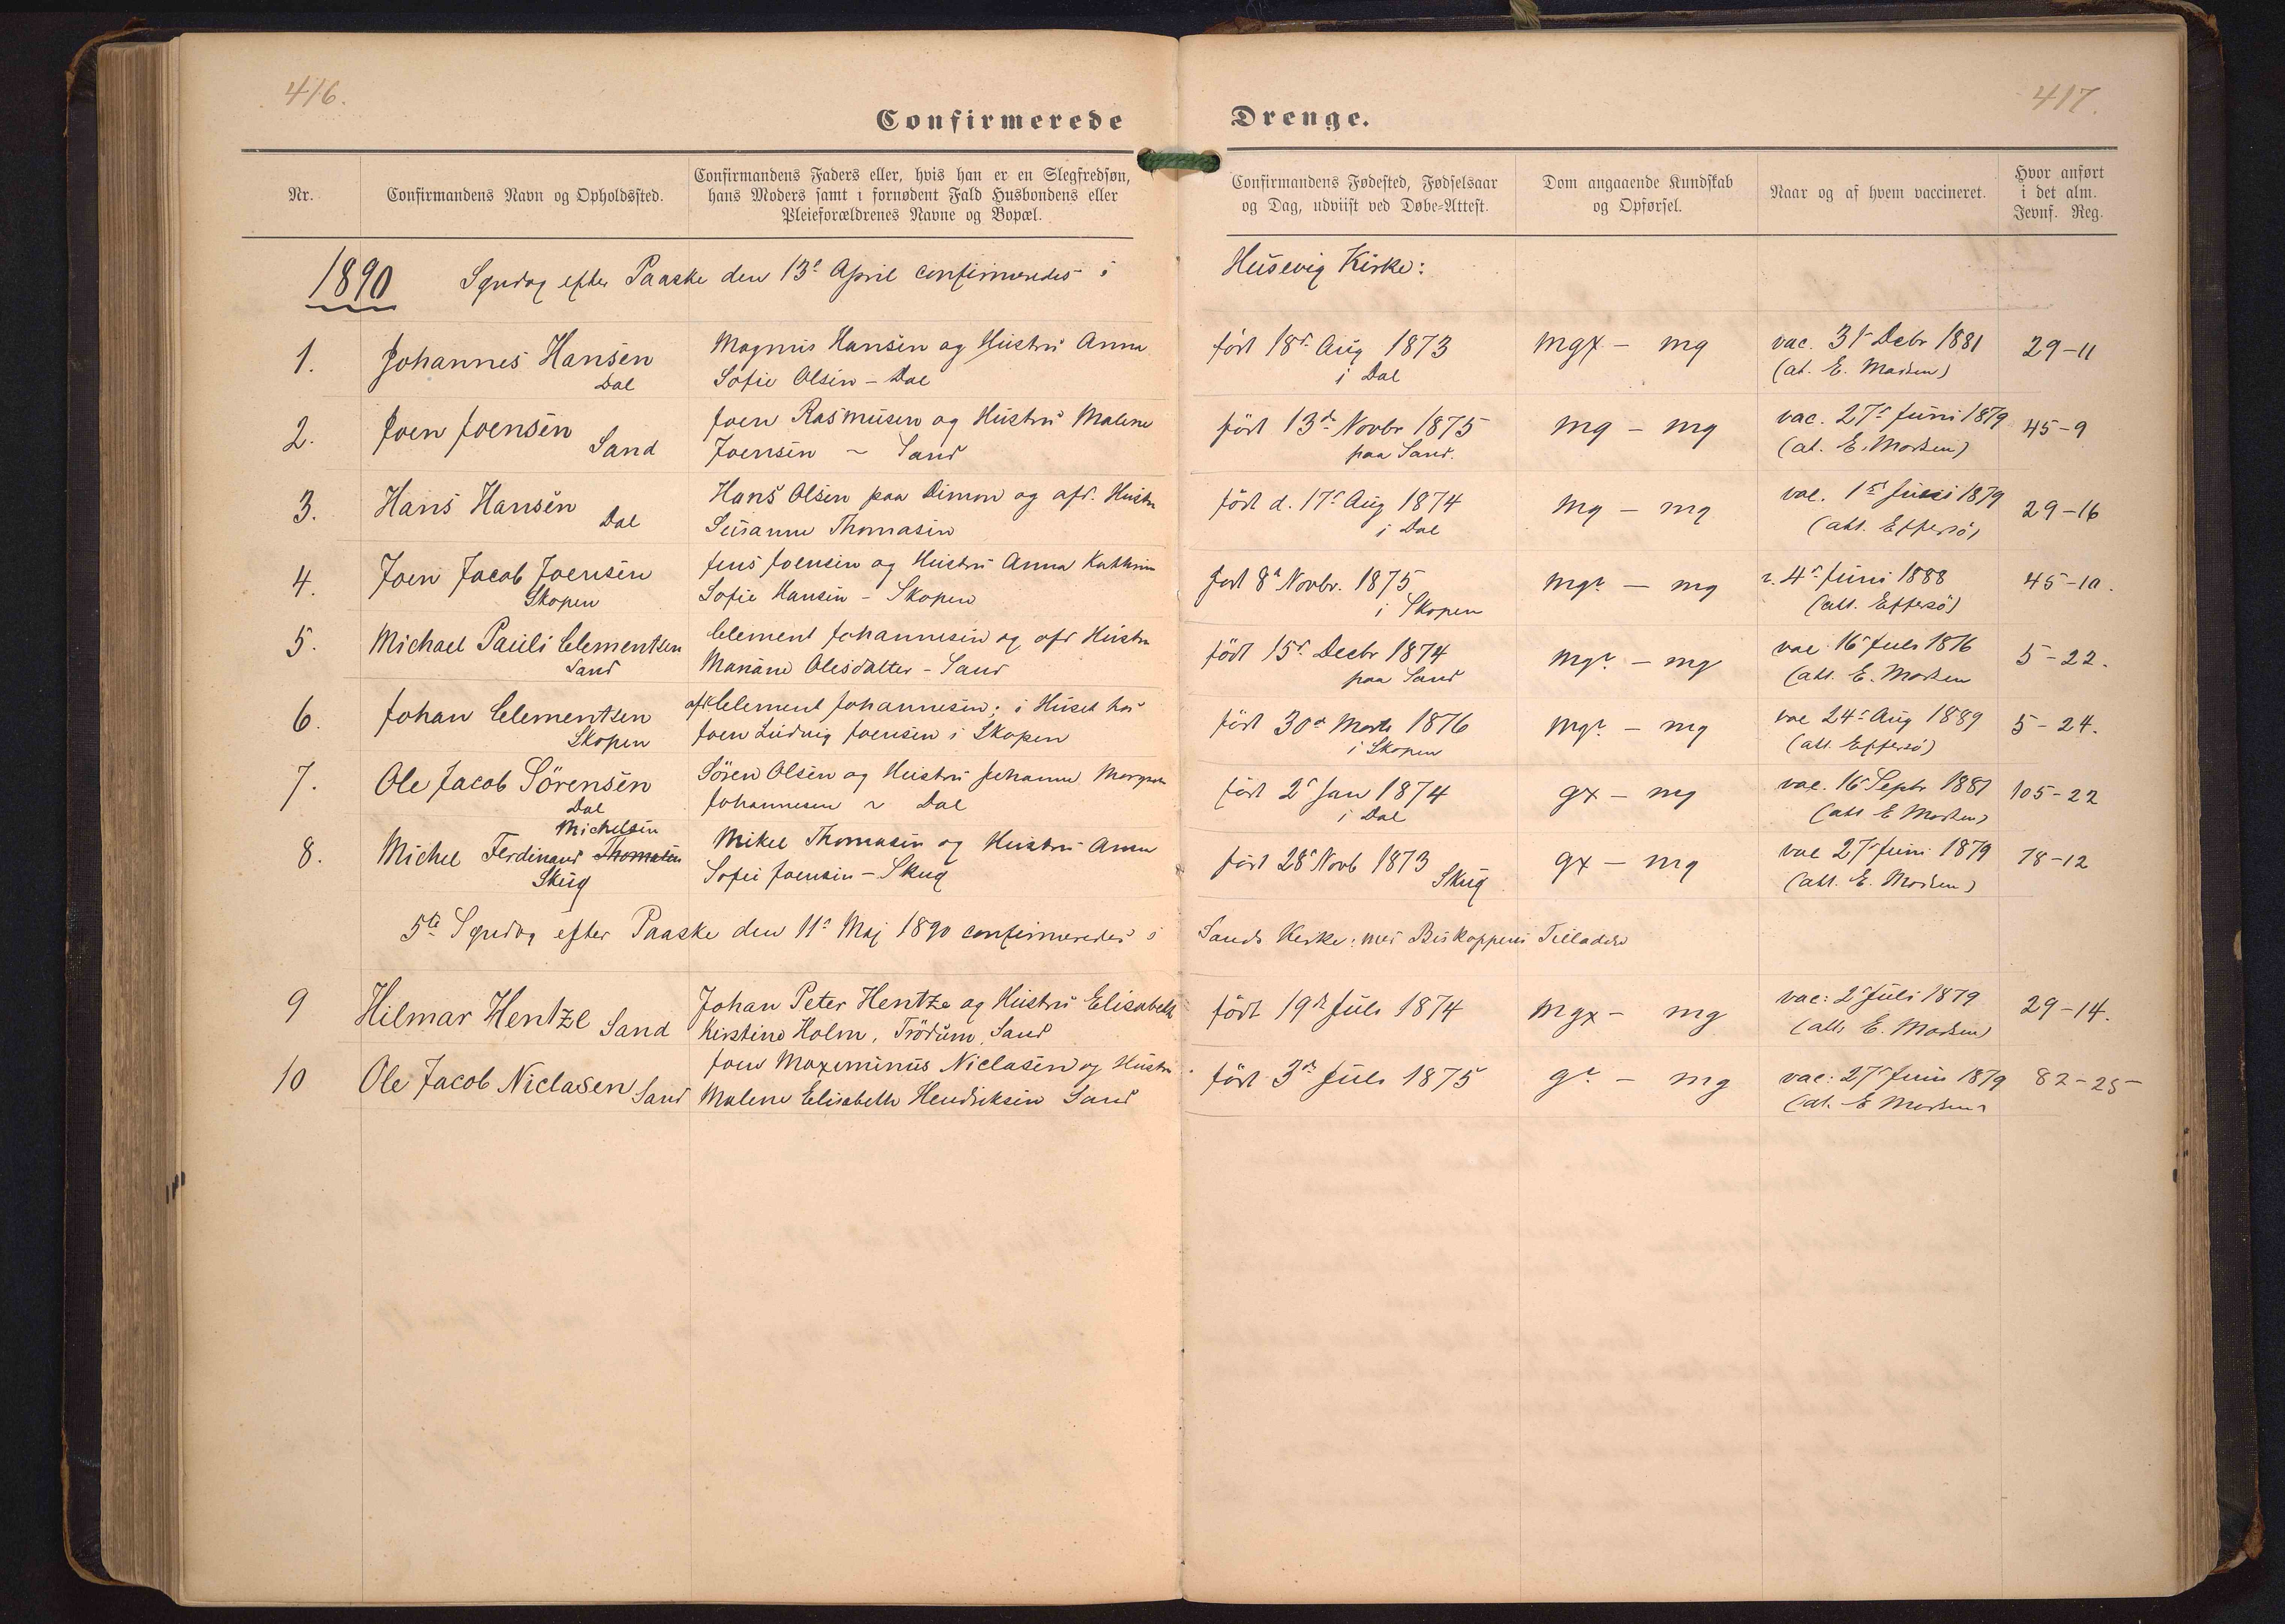 416.
417.
Confirmerede Drenge.
Nr.
Confirmandens Navn og Opholdssted.
Confirmandens Faders eller, hvis han er en Slegfredsøn,
hans Moders samt i fornødent Fald Husbondens eller
Pleieforældrenes Navne og Bopæl.
Confirmandens Fødested, Fødselsaar
og Dag, udviist ved Døbe-Attest.
Dom angaaende Kundskab
og Opførsel.
Naar og af hvem vaccineret.
Hvor anført
i det alm.
Jevnf. Reg.
1890 Søndag efter Paaske den 13d April confirmeredes i Husevig Kirke:
1.
Johannes Hansen
Dal
Magnus Hansen og Hustru Anna
Sofie Olsen - Dal
født 18d Aug 1873
i Dal
mgx - mg
vac. 31 Debr 1881
(at. E. Madsen)
29-11
2.
Joen Joensen
Sand
Joen Rasmusen og Hustru Malene
Joensen ~ Sand
født 13de Novbr 1875
paa Sand.
mg - mg
vac. 27d Juni 1879
(at. E. Madsen)
45-9
3.
Hans Hansen
Dal
Hans Olsen paa Dimon og afd. Hustru
Susanne Thomasen
født d. 17d Aug 1874
i Dal
mg - mg
vac. 1d 1879
(att. Effersö)
29-16
4.
Joen Jacob Joensen
Skopen
Jens Joensen og Hustru Anna Kathrine
Sofie Hansen - Skopen
født 8d Novbr. 1875
i Skopen
mg? - mg
v. 4d Juni 1888
(att. Effersö)
45-10.
5.
Michael Pauli Clementsen
Sand
Clement Johannesen og afd Hustru
Olesdatter - Sand
født 15d Decbr 1874
paa Sand
mg? - mg
vac 16d Juli 1876
(att. E. Madsen
5-22.
6.
Johan Clementsen
Skopen
afd Clement Johannesen; i Huset hos
Joen Ludvig Joensen i Skopen
født 30d Marts 1876
i Skopen
mg? - mg
vac 24d Aug 1889
(att. Effersö)
5-24.
7.
Ole Jacob Sörensen
Dal
Sören Olsen og Hustru Johanne
Johannesen ~ Dal
født 2d Jan 1874
i Dal
gx - mg
vac. 16d Septr 1881
(att E Madsen)
105-22
8.
Michelsen
Michel Ferdinand Thomasen
Skug
Mikel Thomasen og Hustru Anna
Sofie Joensen - Skug
født 28d Novb 1873
Skug
gx - mg
vac 27d Juni 1879
(att. E. Madsen)
78-12
5te Søndag efter Paaske den 11d Maj 1890 confirmeredes i Sands Kirke: med Biskoppens Tilladelse
9
Hilmar Hentze Sand
Johan Peter Hentze og Hustru Elisabeth
Kirstine Holm, Trödum, Sand
født 19de Juli 1874
mgx - mg
vac: 2d Juli 1879
(att. E. Madsen)
29-14.
10
Ole Jacob Niclasen Sand
Joen Maxeminus Niclasen og Hustru
Malene Elisabeth Hendriksen Sand
født 3de Juli 1875
g? - mg
vac: 27d Juni 1879
(at. E Madsen)
82-25